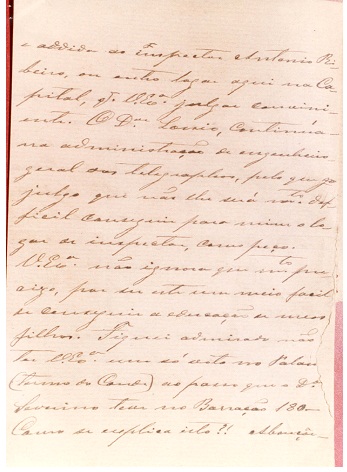 e addido ao Inspector Antonio Ri-
beiro, ou outro logar aqui na Ca-
pital, q. V. Ex.ª julgar conveni-
ente. O D.or continúa
na administração de engenheiro
geral dos telegraphos, pelo que
julgo que não lhe será m.to dif-
ficil conseguir para mim o lo-
gar de inspector, como peço.
V. Ex.ª não ignora que m.to pre-
cizo, por ser este um meio facil
se conseguir a educação de meus
filhos. Fiquei admirado não
ter V. Ex.ª um só voto no
(Termo do ) ao passo que o D.r
Severino teve no Barracão 130.
Como se explica isto?!